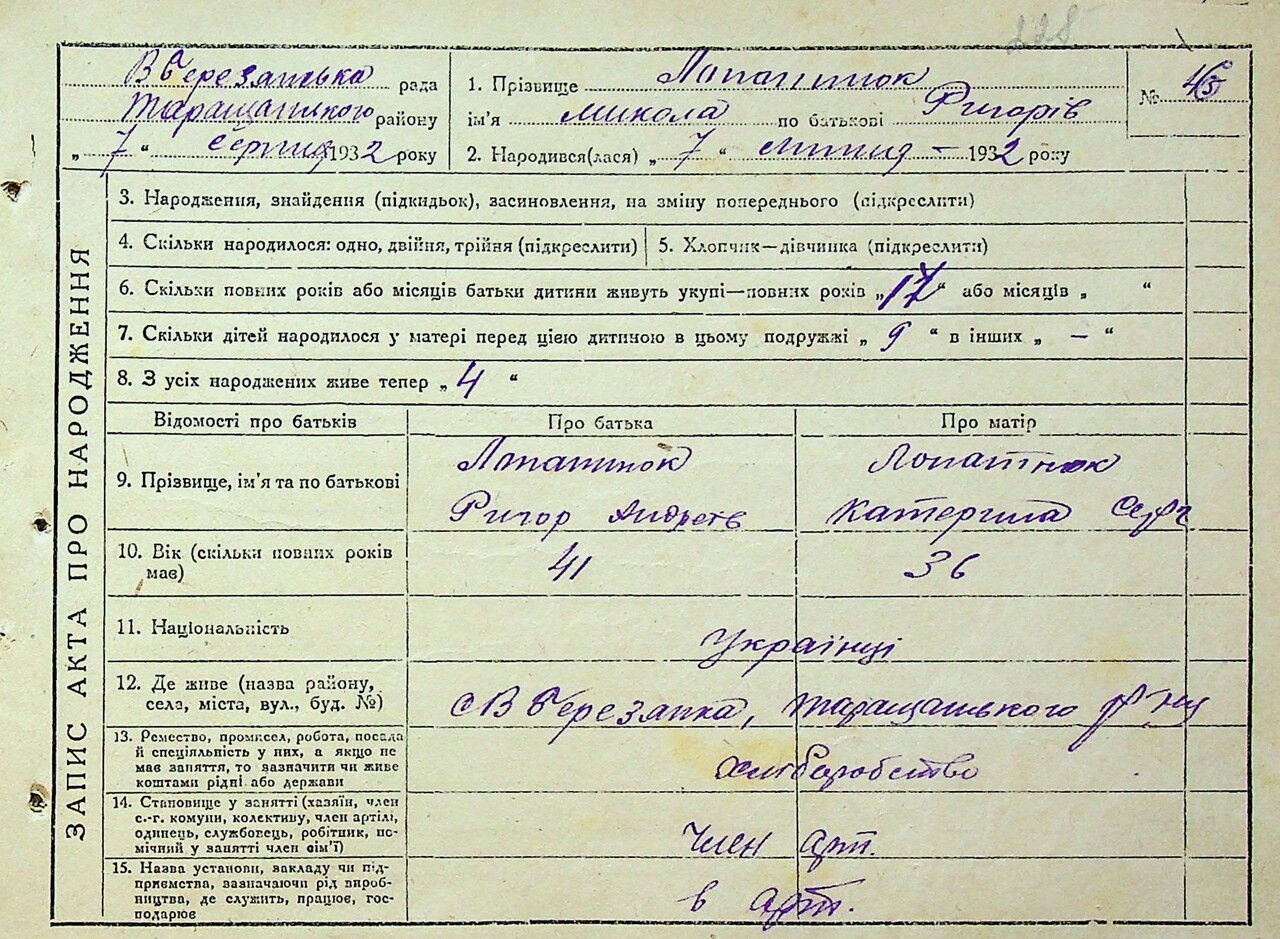 228
В Березанська рада
Таращанського району
„ 7 “ Серпня 1932 року
1. Прізвище Лопатнюк
ім'я Микола по батькові Ригорів
2. Народився(лася) „ 7 “ Липня – 1932 року
№ 45
ЗАПИС АКТА ПРО НАРОДЖЕННЯ
3. Народження, знайдення (підкидьок), засиновлення, на зміну попереднього (підкреслити)
4. Скільки народилося: одно, двійня, трійня (підкреслити)
5. Хлопчик—дівчинка (підкреслити)
6. Скільки повних років або місяців батьки дитини живуть укупі—повних років „ 17 “ або місяців „ “
7. Скільки дітей народилося у матері перед цією дитиною в цьому подружжі „ 9 “ в інших „ — “
8. З усіх народжених живе тепер „ 4 “
Відомості про батьків
Про батька
Про матір
9. Прізвище, ім'я та по батькові
Лопатнюк
Ригор Андреєв
Лопатнюк
Катерина
10. Вік (скільки повних років
має)
41
36
11. Національність
Українці
12. Де живе (назва району,
села, міста, вул., буд. №)
с В Березанка, Таращанського р-ну
13. Ремество, промисел, робота, посада
й спеціяльність у них, а якщо не
має заняття, то зазначити чи живе
коштами рідні або держави
Хліборобство
14. Становище у занятті (хазяїн, член
с.-г. комуни, колективу, член артілі,
одинець, службовець, робітник, по-
мічний у занятті член сім'ї)
Член арт.
15. Назва установи, закладу чи під-
приємства, зазначаючи рід вироб-
ництва, де служить, працює, гос-
подарює
в арт.